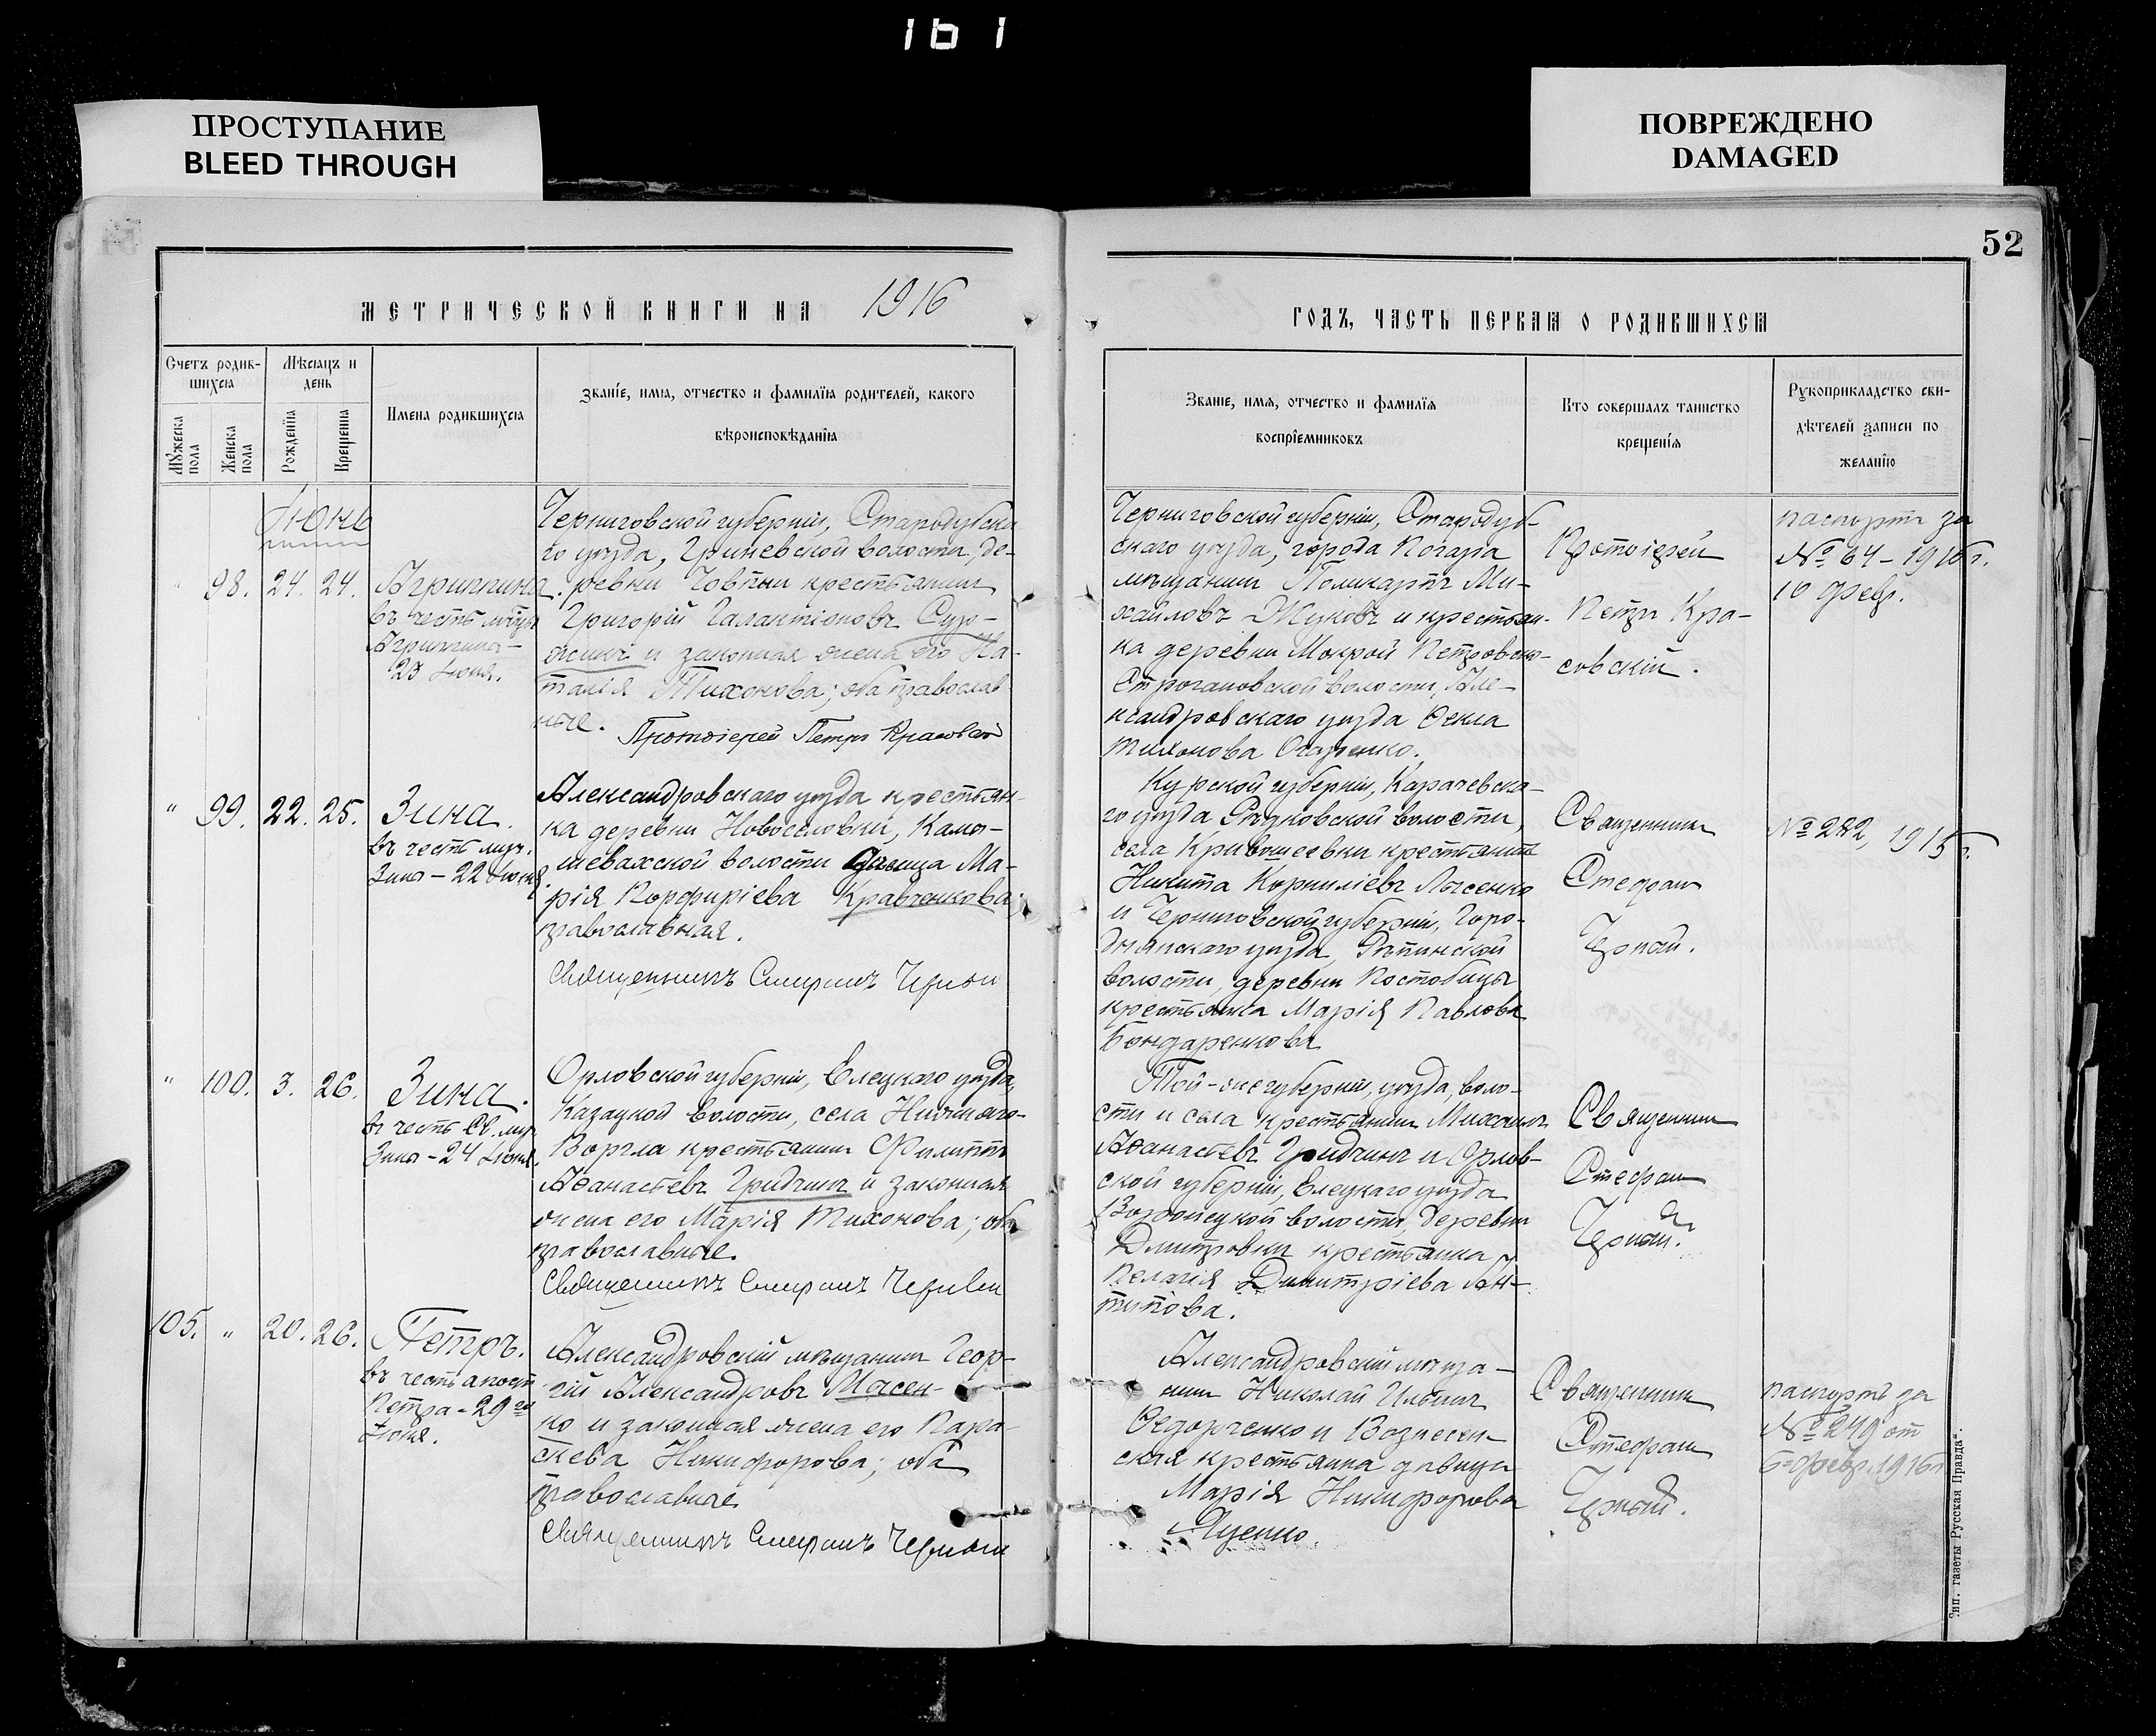 161
ПРОСТУПАНИЕ
BLEED THROUGH
ПОВРЕЖДЕНО
DAMAGED
52
МЕТРИЧЕСКОЙ КНИГИ НА 1916
ГОДЪ, ЧАСТЬ ПЕРВАЯ О РОДИВШИХСЯ
Счетъ родив-
шихся
Мужеска пола
Женска пола
Мѣсяцъ и
день
Рожденія
Крещенія
Имена родившихся
Званіе, имя, отчество и фамилія родителей, какого
вѣроисповѣданія
Званіе, имя, отчество и фамилія
воспріемниковъ
Кто совершалъ таинство
крещенія
Рукоприкладство сви-
дѣтелей записи по
желанію
Іюнь
" 98. 24. 24.
Агриппина
въ честь мцы
Агриппины
23 Іюня.
Черниговской губерніи, Стародубска
го уѣзда, Гриневской волости, де-
ревни Човпни крестьянинъ
Григорій Галактіоновъ
и законная жена его На-
талія Тихонова; оба православ
ные.
Протоіерей Петръ Красовскій
Черниговской губерніи, Стародуб-
скаго уѣзда, города Погара
мѣщанинъ Поликарпъ Ми-
хайловъ Жуковъ и крестьян-
ка деревни Мокрой Петровско-
Строгановской волости, Але-
ксандровскаго уѣзда Ѳекла
Тихонова
Протоіерей
Петръ Кра-
совскій.
паспортъ за
№ 64 - 1916 г.
10 Февр.
" 99. 22. 25.
Зина.
въ честь муч.
Зины - 22 Іюня.
Александровскаго уѣзда крестьян-
ка деревни Новоселовки, Камы-
шевахской волости дѣвица Ма-
рія Порфиріева Кравченкова;
православная.
Священникъ Стефанъ Черный
Курской губерніи, Карачевска-
го уѣзда волости,
села Кривошеевки крестьянинъ
Никита Корниліевъ Лысенко
и Черниговской губерніи, Горо-
днянскаго уѣзда, Рѣпинской
волости, деревни Постобицы
крестьянка Марія Павлова
Бондаренкова
Священникъ
Стефанъ
Черный.
№ 282, 1915 г.
" 100. 3. 26.
Зина.
въ честь Св. муч.
Зины - 24 Іюня.
Орловской губерніи, Елецкаго уѣзда,
Казацкой волости, села Нижняго-
Воргла крестьянинъ Филиппъ
Аѳанасіевъ Гридчинъ и законная
жена его Марія Тихонова; оба
православные.
Священникъ Стефанъ Черный
Той-же губерніи, уѣзда, воло-
сти и села крестьянинъ Михаилъ
Аѳанасіевъ Гридчинъ и Орлов-
ской губерніи, Елецкаго уѣзда
волости, деревни
Дмитровки крестьянка
Пелагія Димитріева Ан-
типова.
Священникъ
Стефанъ
Черный.
105. " 20. 26.
Петръ.
въ честь апост.
Петра - 29 го
Іюня.
Александровскій мѣщанинъ Геор-
гій Александровъ Мысен-
ко и законная жена его Пара-
скева Никифорова; оба
православные
Священникъ Стефанъ Черный
Александровскій мѣща-
нинъ Николай Ильинъ
Ѳедорченко и Вознесен-
ская крестьянка дѣвица
Марія Никифорова
Яценко.
Священникъ
Стефанъ
Черный.
паспортъ за
№ 249 от
6 Февр. 1916 г.
Тип. газеты Русская Правда".